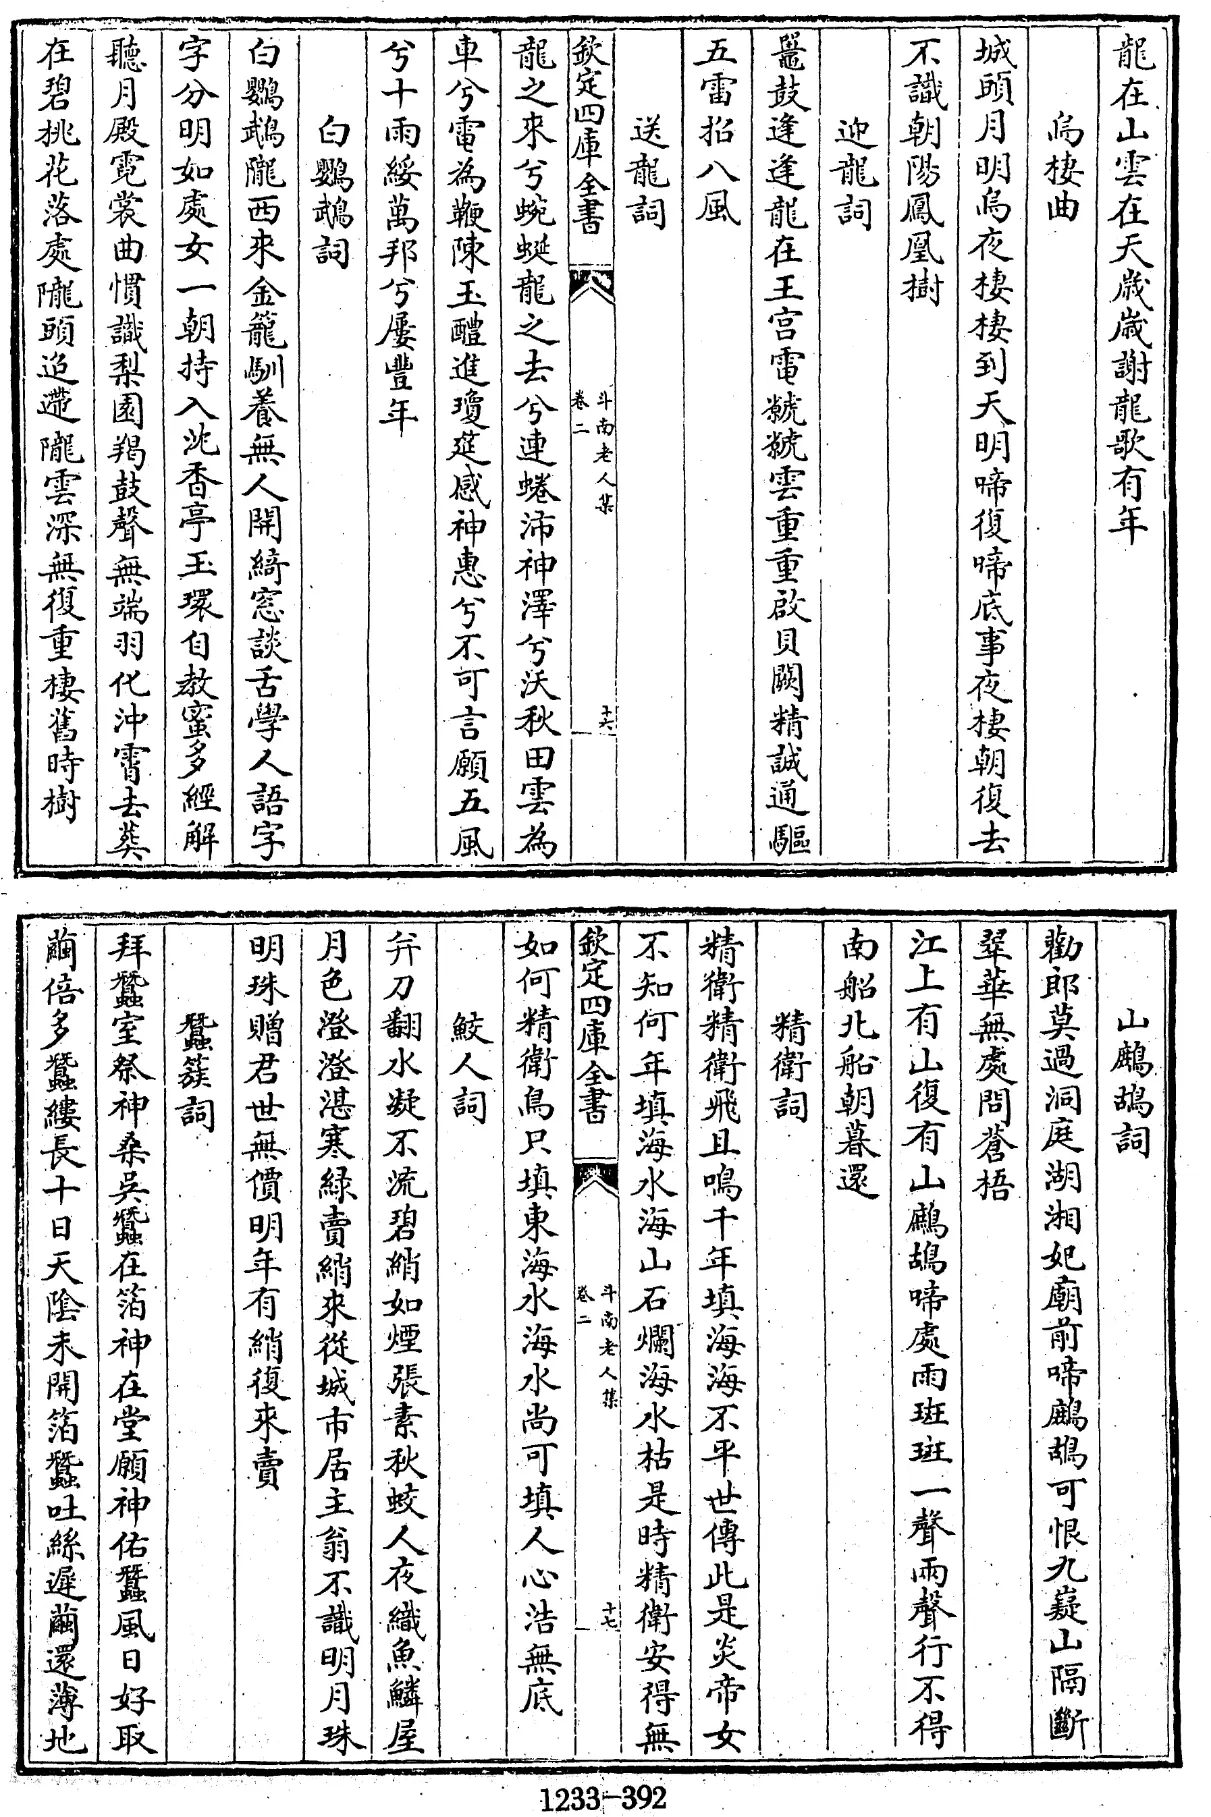 龍在山雲在天歲歲謝龍歌有年
烏棲曲
城頭月明烏夜棲棲到天明啼復啼底事夜棲朝復去
不識朝陽鳳凰樹
迎龍詞
鼉鼓逢逢龍在王宫電虩虩雲重重啟貝闕精誠通驅
五雷招八風
送龍詞
欽定四庫全書
斗南老人集
卷二
十六
龍之來兮蜿蜒龍之去兮連蜷沛神澤兮沃秋田雲為
車兮電為鞭陳玉醴進瓊筵感神惠兮不可言願五風
兮十雨綏萬邦兮屢豐年
白鸚鵡詞
白鸚鵡隴西來金籠馴養無人開綺窓談舌學人語字
字分明如處女一朝持入沈香亭玉環自教蜜多經解
聽月殿霓裳曲慣識梨園羯鼓聲無端羽化沖霄去葬
在碧桃花落處隴頭迢遰隴雲深無復重棲舊時樹
山鷓鴣詞
勸郎莫過洞庭湖湘妃廟前啼鷓鴣可恨九嶷山隔斷
翠華無處問蒼梧
江上有山復有山鷓鴣啼處雨斑斑一聲兩聲行不得
南船北船朝暮還
精衛詞
精衛精衛飛且鳴千年填海海不平世傳此是炎帝女
不知何年填海水海山石爛海水枯是時精衛安得無
欽定四庫全書
斗南老人集
卷二
十七
如何精衛鳥只填東海水海水尚可填人心浩無底
鮫人詞
并刀翻水凝不流碧綃如煙張素秋蛟人夜織魚鱗屋
月色澄澄湛寒綠賣綃來從城市居主翁不識明月珠
明珠贈君世無價明年有綃復來賣
蠶簇詞
拜蠶室祭神桑吳蠶在箔神在堂願神佑蠶風日好取
繭倍多蠶縷長十日天陰未開箔蠶吐絲遲繭還薄地
1233-392